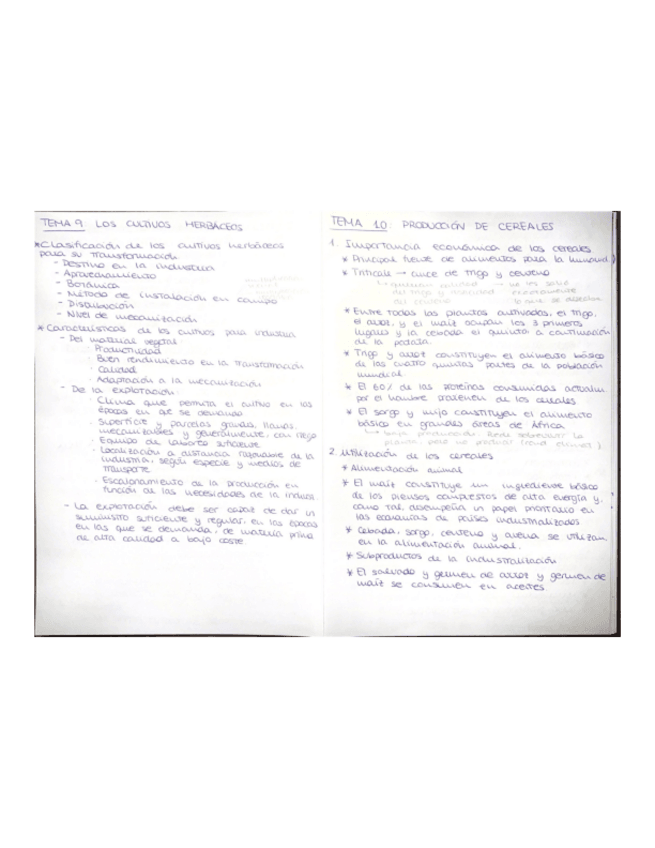 TEMA 9 LOS CULTIVOS HERBÁCEOS
* Clasificación de los cultivos herbáceos
para su transformación
- Destino en la industria
- Aprovechamiento
- Botánica
- Método de instalación en campo
- Distribución
- Nivel de mecanización
* Características de los cultivos para industria
- Del material vegetal
· Productividad
· Buen rendimiento en la transformación
· Calidad
· Adaptación a la mecanización
- De la explotación:
· Clima que permita el cultivo en las
épocas en que se demanda
· Superficie y parcelas grandes, llanas,
mecanizables y generalmente, con riego
· Equipo de laboreo suficiente
· Localización a distancia razonable de la
industria, según especie y medios de
transporte.
· Escalonamiento de la producción en
función de las necesidades de la indus.
- La explotación debe ser capaz de dar un
suministro suficiente y regular, en las épocas
en las que se demanda, de materia prima
de alta calidad a bajo coste
TEMA 10 PRODUCCIÓN DE CEREALES
1. Importancia económica de los cereales
* Principal fuente de alimentos para la humanid.
* Triticale → cruce de trigo y centeno
del trigo y
del centeno lo que se
* Entre todas las plantas cultivadas, el trigo,
el arroz, y el maíz ocupan los 3 primeros
lugares y la cebada el quinto, a continuación
de la patata.
* Trigo y arroz constituyen el alimento básico
de las cuatro quintas partes de la población
mundial.
* El 60% de las proteínas consumidas actualm.
por el hombre provienen de los cereales
* El sorgo y mijo constituyen el alimento
básico en grandes áreas de África
↳ producción. Puede la
planta, pero no
2. Utilización de los cereales
* Alimentación animal
* El maíz constituye un ingrediente básico
de los piensos compuestos de alta energía y,
como tal, desempeña un papel prioritario en
las economías de países industrializados
* Cebada, sorgo, centeno y avena se utilizan
en la alimentación animal.
* Subproductos de la industrialización
* El salvado y germen de arroz y germen de
maíz se consumen en aceites